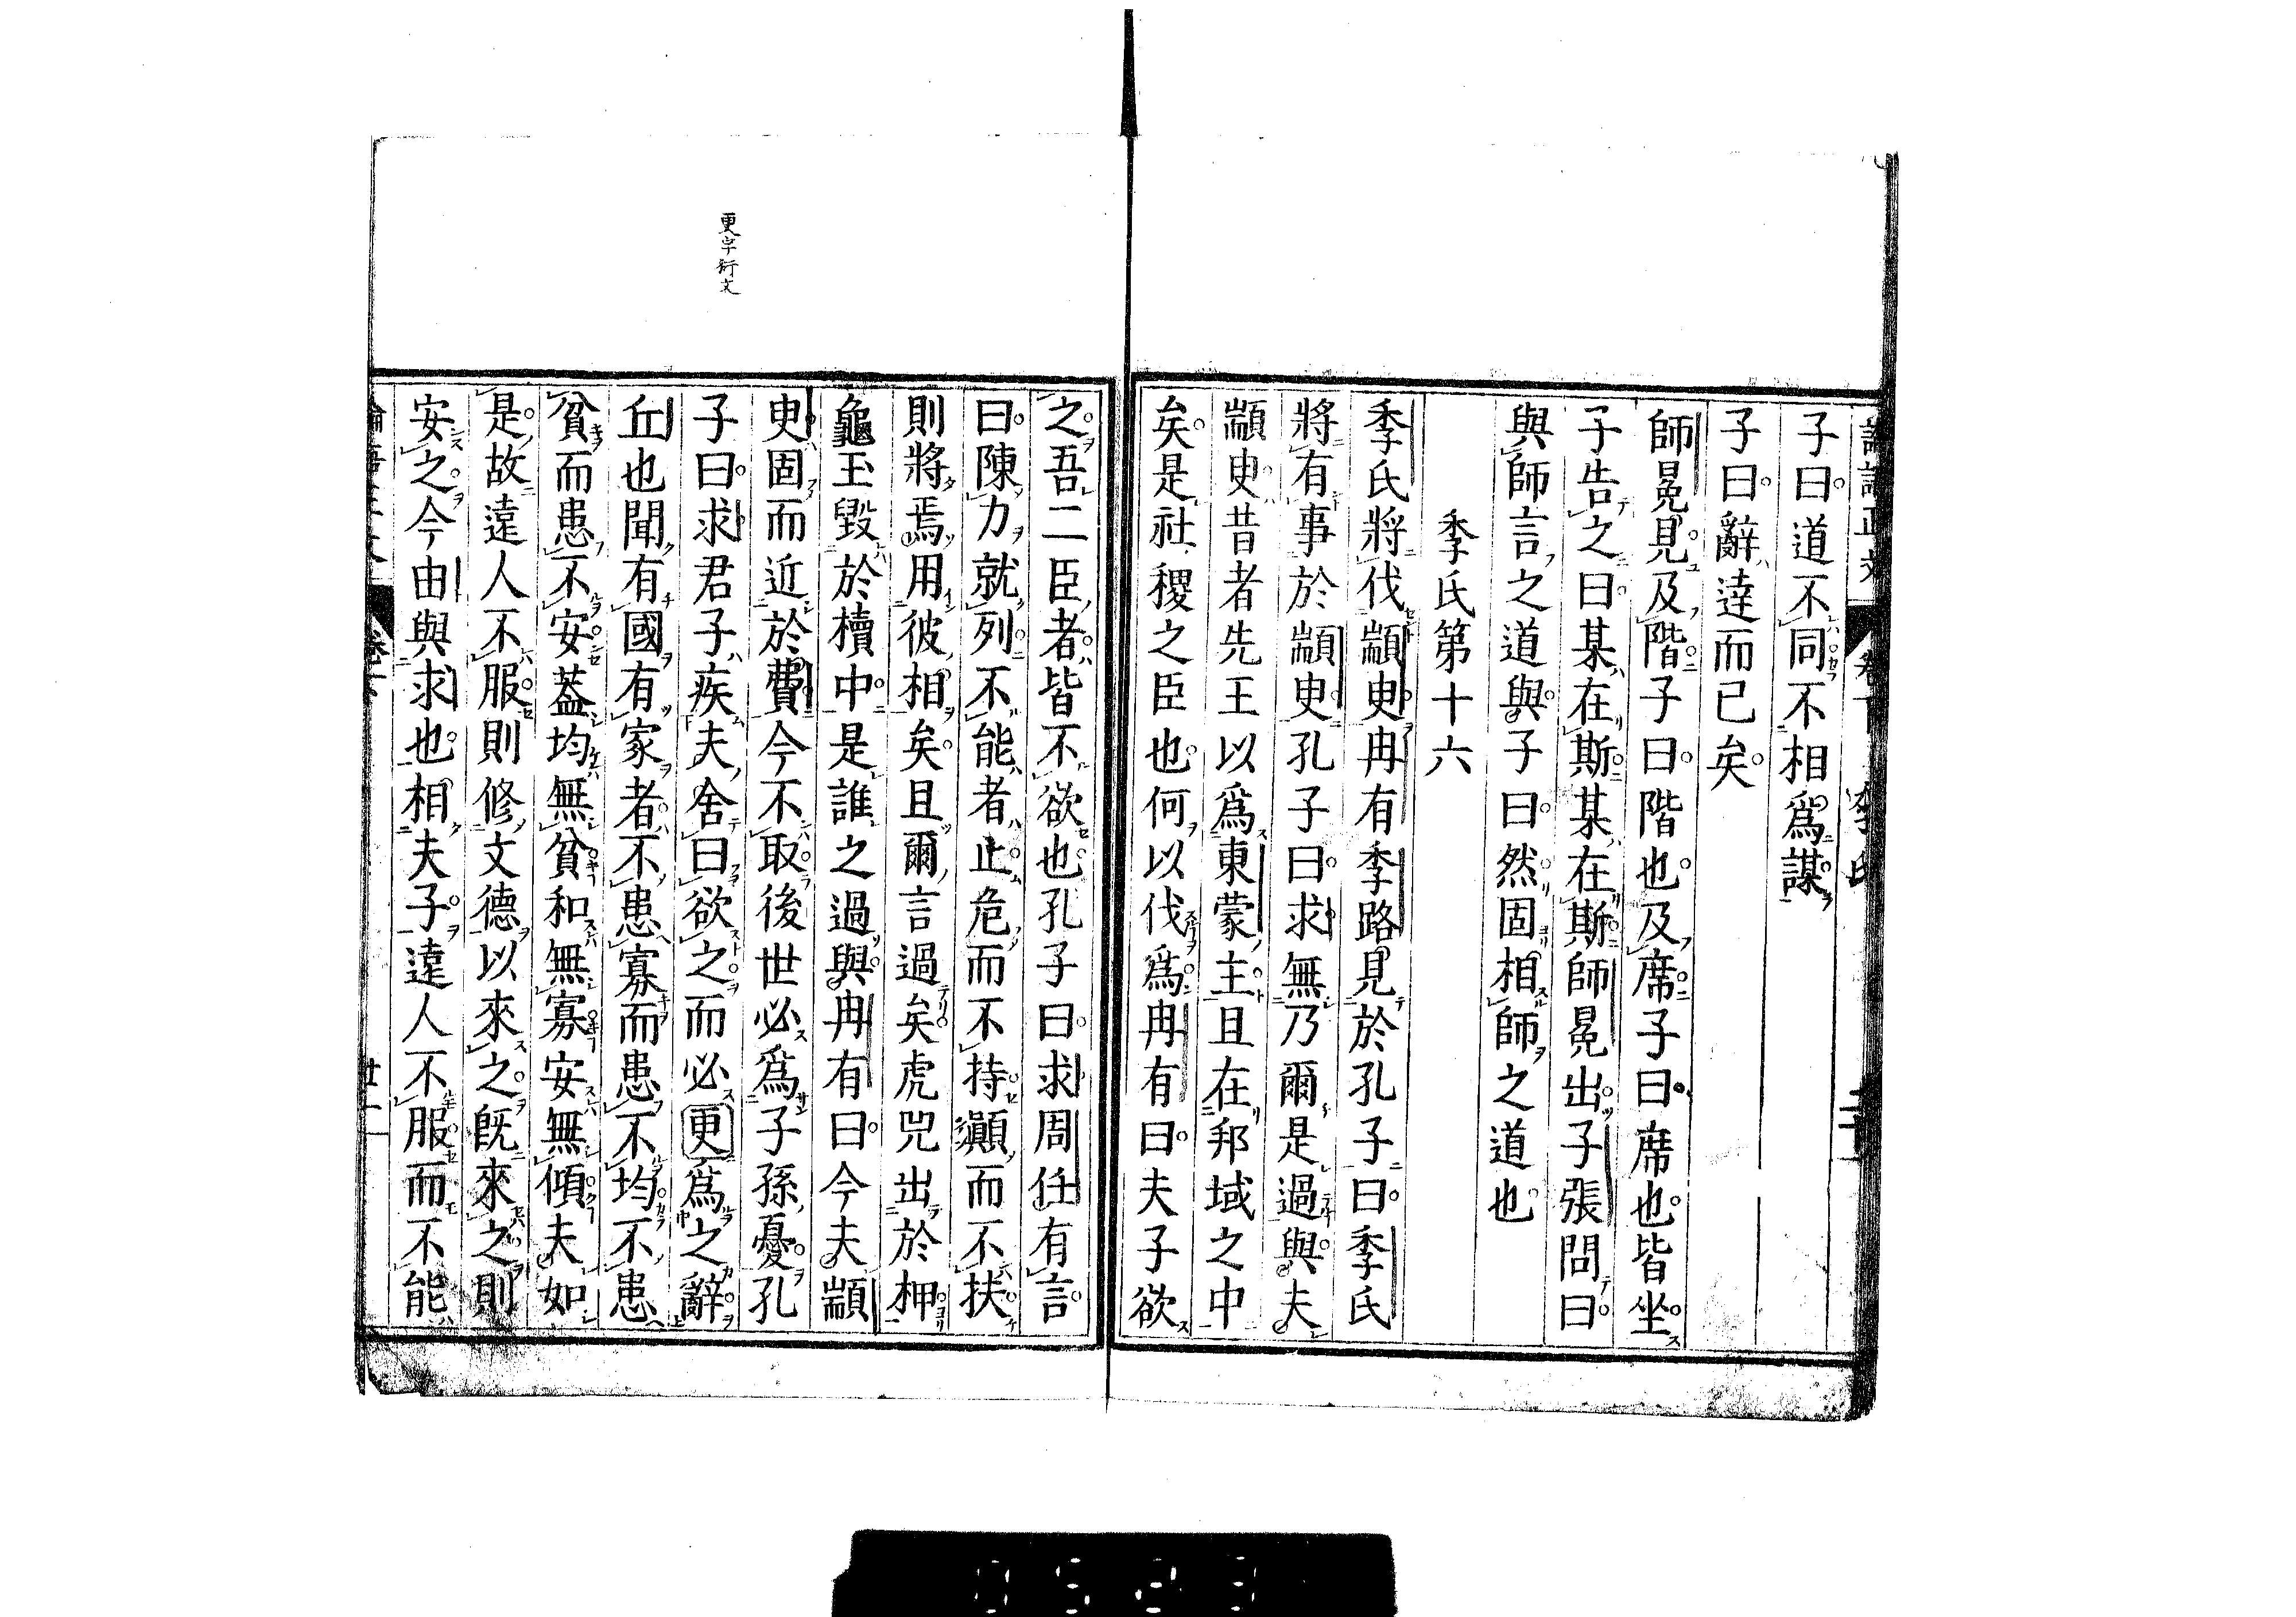 子曰道不同不相爲謀
子曰辭達而已矣
師冕見及階子曰階也及席子曰席也皆坐
子告之曰某在斯某在斯師冕出子張問曰
與師言之道與子曰然固相師之道也
季氏第十六
季氏將伐顓臾冉有季路見於孔子曰季氏
將有事於顓臾孔子曰求無乃爾是過與夫
顓臾昔者先王以爲東蒙主且在邦域之中
矣是社稷之臣也何以伐爲冉有曰夫子欲
之吾二臣者皆不欲也孔子曰求周任有言
曰陳力就列不能者止危而不持顚而不扶
則將焉用彼相矣且爾言過矣虎兕出於柙
龜玉毀於櫝中是誰之過與冉有曰今夫顓
臾固而近於費今不取後世必爲子孫憂孔
子曰求君子疾夫舍曰欲之而必更爲之辭
丘也聞有國有家者不患寡而患不均不患
貧而患不安蓋均無貧和無寡安無傾夫如
是故遠人不服則修文德以來之旣來之則
安之今由與求也相夫子遠人不服而不能
更字衍文